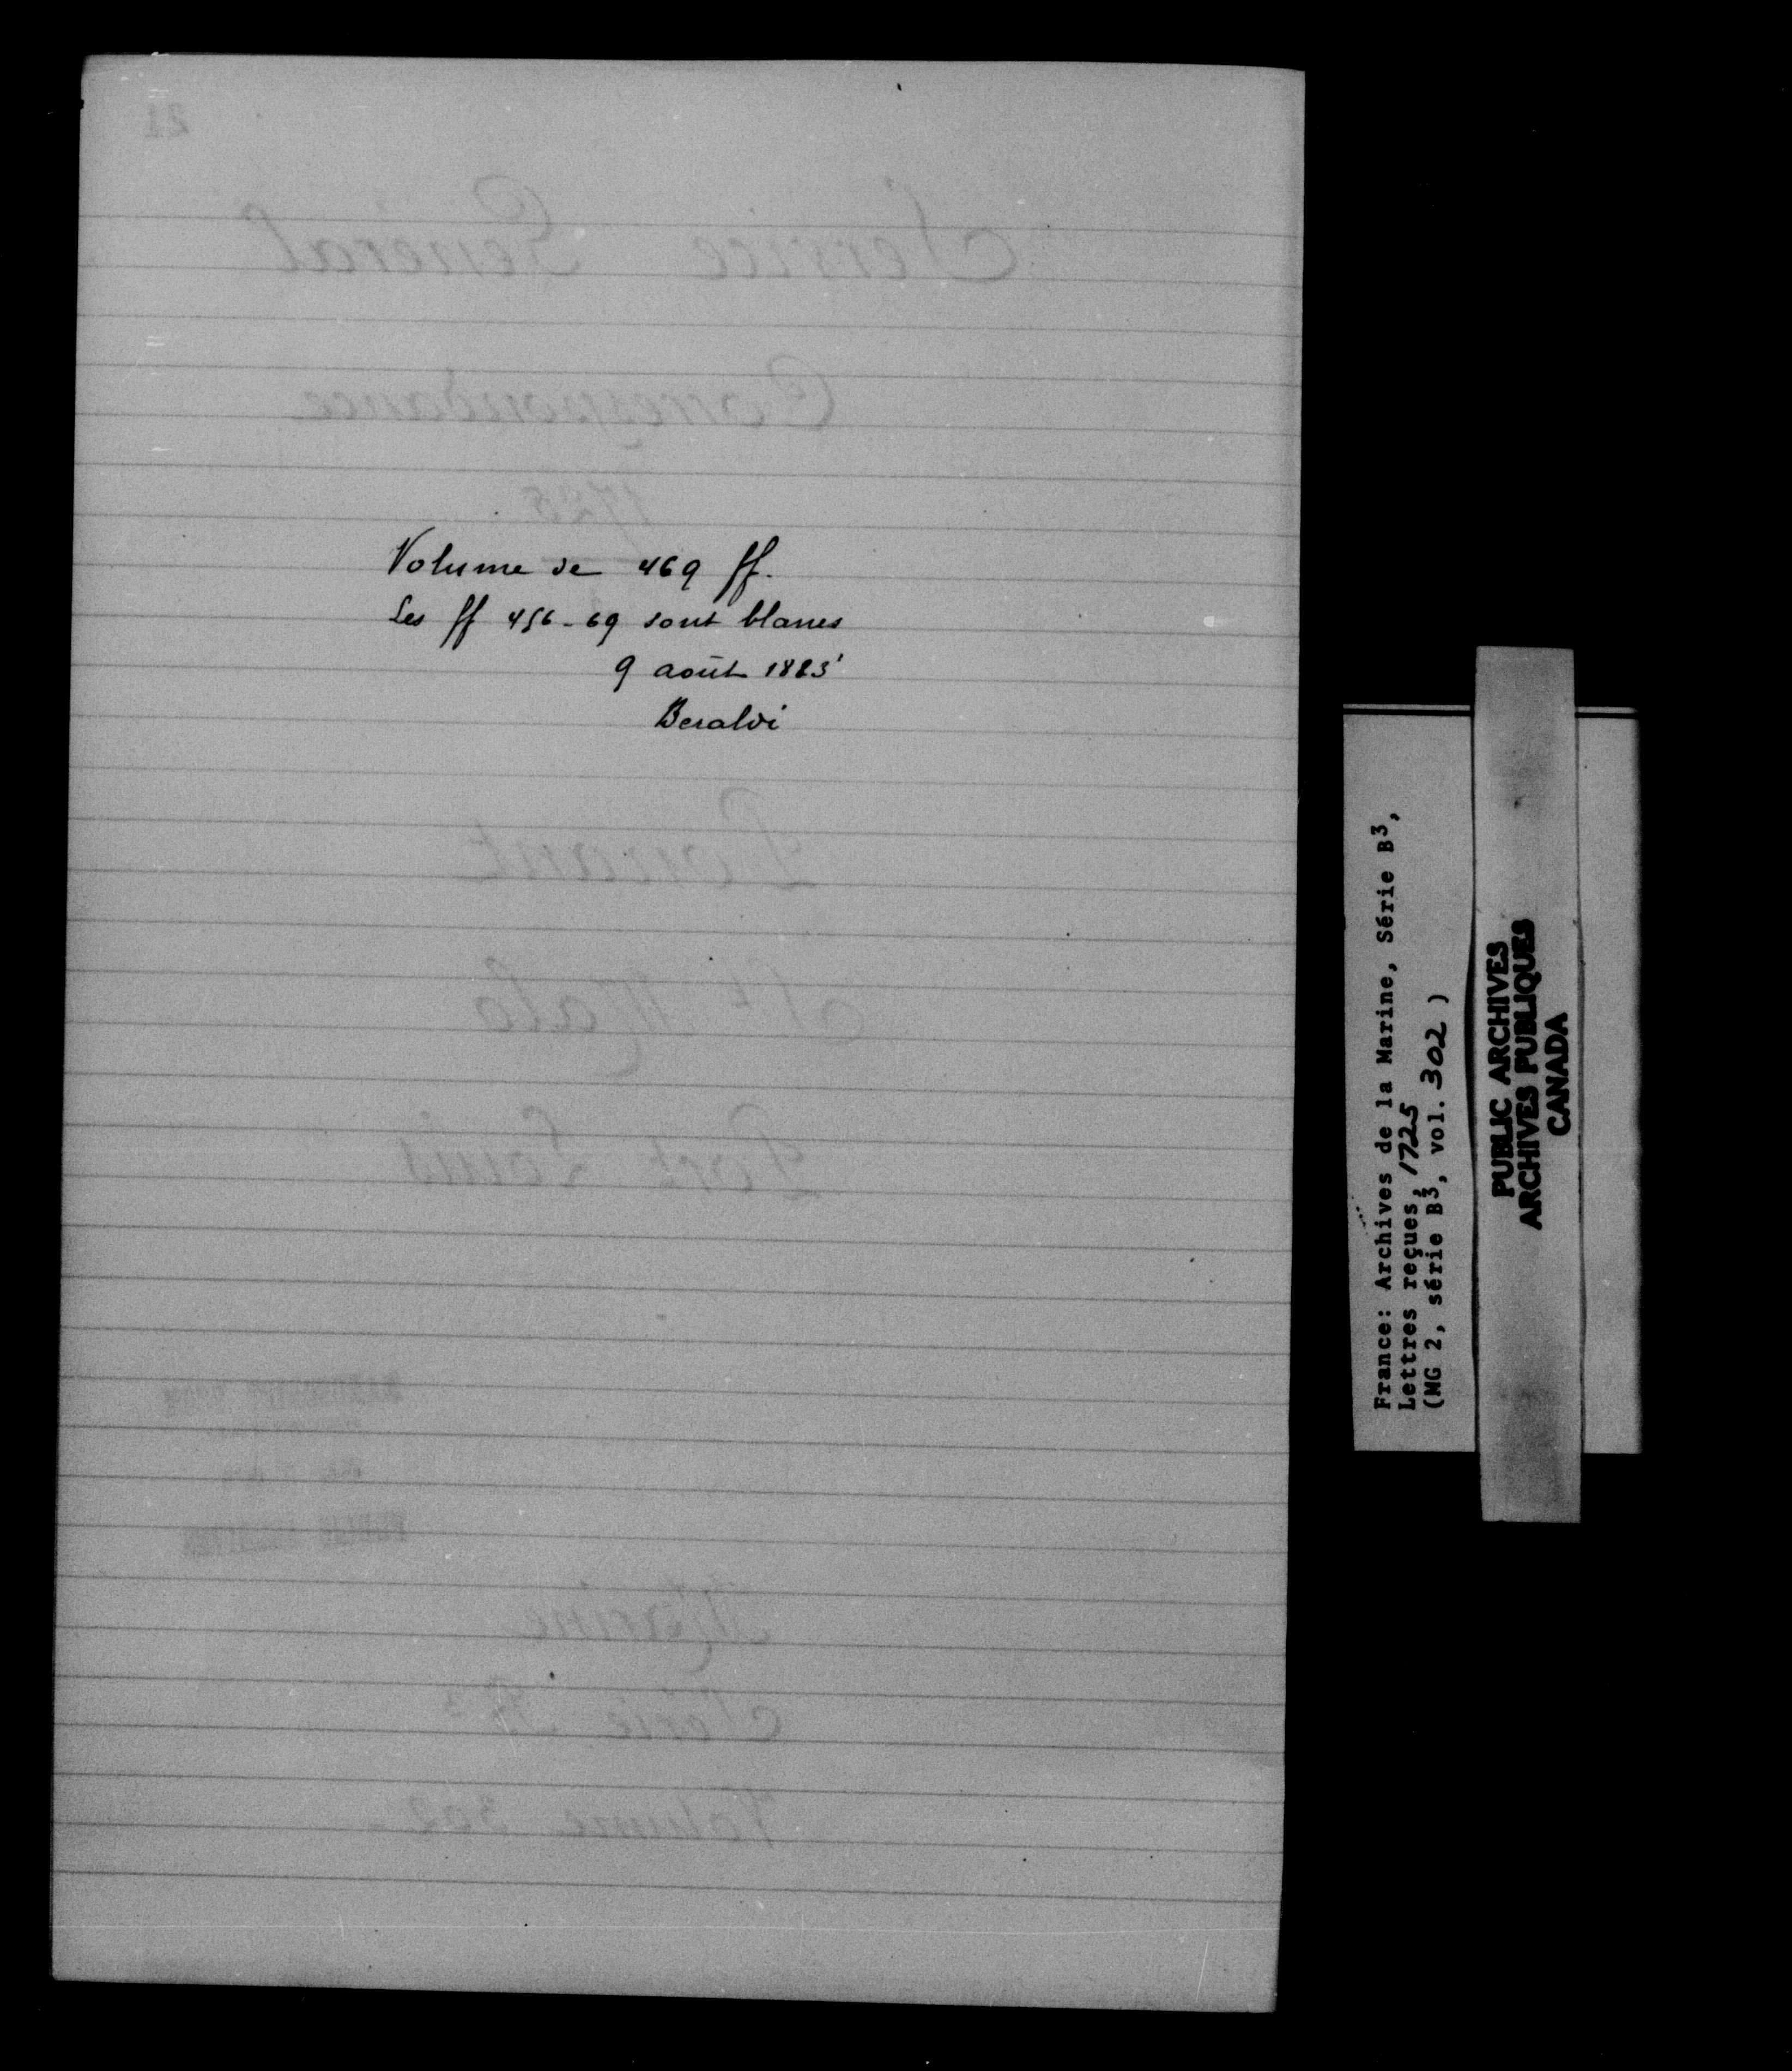 Volume de 469 ff.
Les ff 456-69 sont blancs
9 août 1885
Beraldi
France: Archives de la Marine, Série B3,
Lettres reçues, 1725
(MG 2, série B3, vol. 302)
PUBLIC ARCHIVES
ARCHIVES PUBLIQUES
CANADA
21
Service Général
Correspondance
1725
Ponant
St Malo
Port Louis
Marine
Série B3
Volume 302